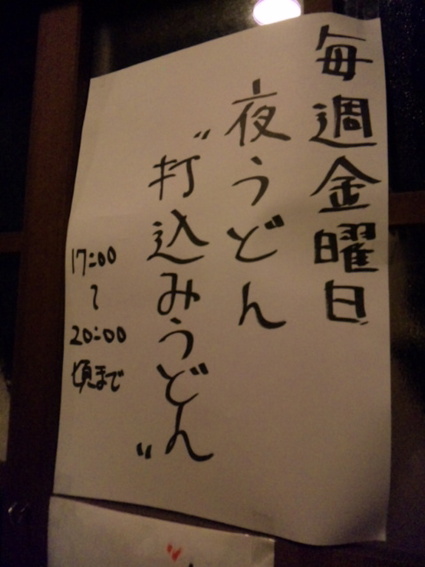 毎週金曜日
夜うどん
"打込みうどん"
17:00
〜
20:00
頃まで